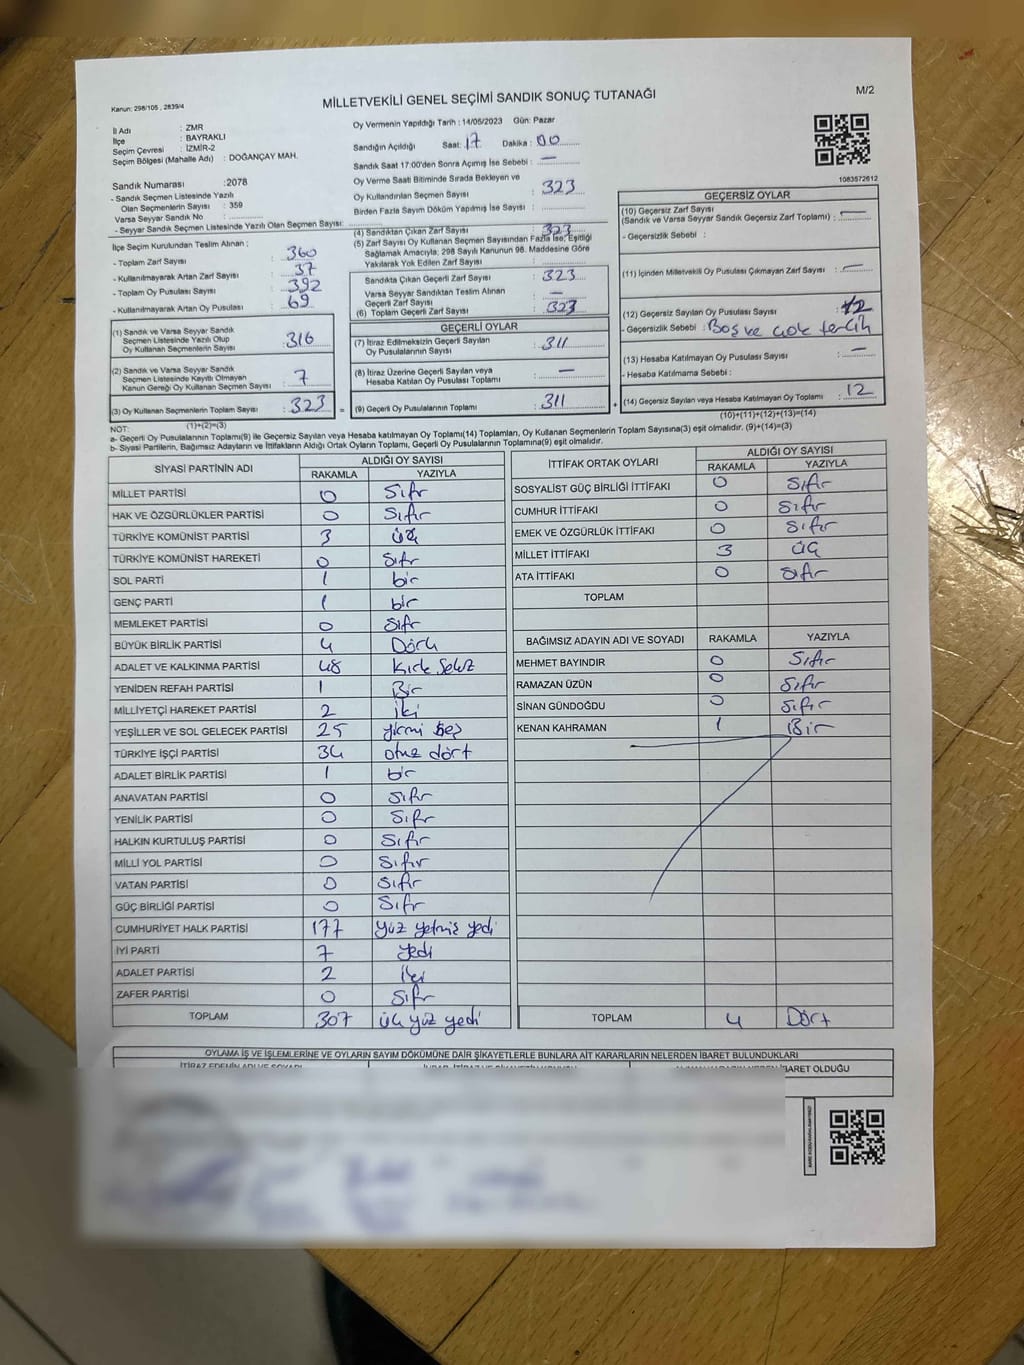 Kanun: 298/105 , 2839/4
MİLLETVEKİLİ GENEL SEÇİMİ SANDIK SONUÇ TUTANAĞI
M/2
İl Adı : ZMR
İlçe : BAYRAKLI
Seçim Çevresi : İZMİR-2
Seçim Bölgesi (Mahalle Adı) : DOĞANÇAY MAH.
Sandık Numarası :2078
- Sandık Seçmen Listesinde Yazılı
Olan Seçmenlerin Sayısı : 359
Varsa Seyyar Sandık No :
- Seyyar Sandık Seçmen Listesinde Yazılı Olan Seçmen Sayısı:
İlçe Seçim Kurulundan Teslim Alınan ;
- Toplam Zarf Sayısı : 360
- Kullanılmayarak Artan Zarf Sayısı : 37
- Toplam Oy Pusulası Sayısı : 392
- Kullanılmayarak Artan Oy Pusulası : 69
(1) Sandık ve Varsa Seyyar Sandık
Seçmen Listesinde Yazılı Olup
Oy Kullanan Seçmenlerin Sayısı : 316
(2) Sandık ve Varsa Seyyar Sandık
Seçmen Listesinde Kayıtlı Olmayan
Kanun Gereği Oy Kullanan Seçmen Sayısı : 7
(3) Oy Kullanan Seçmenlerin Toplam Sayısı : 323
(1)+(2)=(3)
Oy Vermenin Yapıldığı Tarih : 14/05/2023 Gün: Pazar
Sandığın Açıldığı Saat: 17 Dakika : 00
Sandık Saat 17:00'den Sonra Açımış İse Sebebi : —
Oy Verme Saati Bitiminde Sırada Bekleyen ve
Oy Kullandırılan Seçmen Sayısı : 323
Birden Fazla Sayım Döküm Yapılmış İse Sayısı :
(4) Sandıktan Çıkan Zarf Sayısı : 323
(5) Zarf Sayısı Oy Kullanan Seçmen Sayısından Fazla İse, Eşitliği
Sağlamak Amacıyla, 298 Sayılı Kanunun 98. Maddesine Göre
Yakılarak Yok Edilen Zarf Sayısı :
Sandıkta Çıkan Geçerli Zarf Sayısı : 323
Varsa Seyyar Sandıktan Teslim Alınan
Geçerli Zarf Sayısı : —
(6) Toplam Geçerli Zarf Sayısı : 323
GEÇERLİ OYLAR
(7) İtiraz Edilmeksizin Geçerli Sayılan
Oy Pusulalarının Sayısı : 311
(8) İtiraz Üzerine Geçerli Sayılan veya
Hesaba Katılan Oy Pusulası Toplamı : —
= (9) Geçerli Oy Pusulalarının Toplamı : 311
1083572612
GEÇERSİZ OYLAR
(10) Geçersiz Zarf Sayısı
(Sandık ve Varsa Seyyar Sandık Geçersiz Zarf Toplamı) : —
- Geçersizlik Sebebi :
(11) İçinden Milletvekili Oy Pusulası Çıkmayan Zarf Sayısı : —
(12) Geçersiz Sayılan Oy Pusulası Sayısı : 12
- Geçersizlik Sebebi : Boş ve çok tercih
(13) Hesaba Katılmayan Oy Pusulası Sayısı : —
- Hesaba Katılmama Sebebi :
+ (14) Geçersiz Sayılan veya Hesaba Katılmayan Oy Toplamı : 12
(10)+(11)+(12)+(13)=(14)
NOT:
a- Geçerli Oy Pusulalarının Toplamı(9) ile Geçersiz Sayılan veya Hesaba katılmayan Oy Toplamı(14) Toplamları, Oy Kullanan Seçmenlerin Toplam Sayısına(3) eşit olmalıdır. (9)+(14)=(3)
b- Siyasi Partilerin, Bağımsız Adayların ve İttifakların Aldığı Ortak Oyların Toplamı, Geçerli Oy Pusulalarının Toplamına(9) eşit olmalıdır.
SİYASİ PARTİNİN ADI ALDIĞI OY SAYISI
RAKAMLA YAZIYLA
MİLLET PARTİSİ 0 Sıfır
HAK VE ÖZGÜRLÜKLER PARTİSİ 0 Sıfır
TÜRKİYE KOMÜNİST PARTİSİ 3 üç
TÜRKİYE KOMÜNİST HAREKETİ 0 Sıfır
SOL PARTİ 1 bir
GENÇ PARTİ 1 bir
MEMLEKET PARTİSİ 0 Sıfır
BÜYÜK BİRLİK PARTİSİ 4 Dört
ADALET VE KALKINMA PARTİSİ 48 Kırk Sekiz
YENİDEN REFAH PARTİSİ 1 Bir
MİLLİYETÇİ HAREKET PARTİSİ 2 İki
YEŞİLLER VE SOL GELECEK PARTİSİ 25 yirmi beş
TÜRKİYE İŞÇİ PARTİSİ 34 otuz dört
ADALET BİRLİK PARTİSİ 1 bir
ANAVATAN PARTİSİ 0 Sıfır
YENİLİK PARTİSİ 0 Sıfır
HALKIN KURTULUŞ PARTİSİ 0 Sıfır
MİLLİ YOL PARTİSİ 0 Sıfır
VATAN PARTİSİ 0 Sıfır
GÜÇ BİRLİĞİ PARTİSİ 0 Sıfır
CUMHURİYET HALK PARTİSİ 177 Yüz yetmiş yedi
İYİ PARTİ 7 yedi
ADALET PARTİSİ 2 İki
ZAFER PARTİSİ 0 Sıfır
TOPLAM 307 üç yüz yedi
İTTİFAK ORTAK OYLARI ALDIĞI OY SAYISI
RAKAMLA YAZIYLA
SOSYALİST GÜÇ BİRLİĞİ İTTİFAKI 0 Sıfır
CUMHUR İTTİFAKI 0 Sıfır
EMEK VE ÖZGÜRLÜK İTTİFAKI 0 Sıfır
MİLLET İTTİFAKI 3 üç
ATA İTTİFAKI 0 Sıfır
TOPLAM
BAĞIMSIZ ADAYIN ADI VE SOYADI RAKAMLA YAZIYLA
MEHMET BAYINDIR 0 Sıfır
RAMAZAN ÜZÜN 0 Sıfır
SİNAN GÜNDOĞDU 0 Sıfır
KENAN KAHRAMAN 1 Bir
TOPLAM 4 Dört
OYLAMA İŞ VE İŞLEMLERİNE VE OYLARIN SAYIM DÖKÜMÜNE DAİR ŞİKAYETLERLE BUNLARA AİT KARARLARIN NELERDEN İBARET BULUNDUKLARI
İTİRAZ EDENİN ADI VE SOYADI
İBARET OLDUĞU